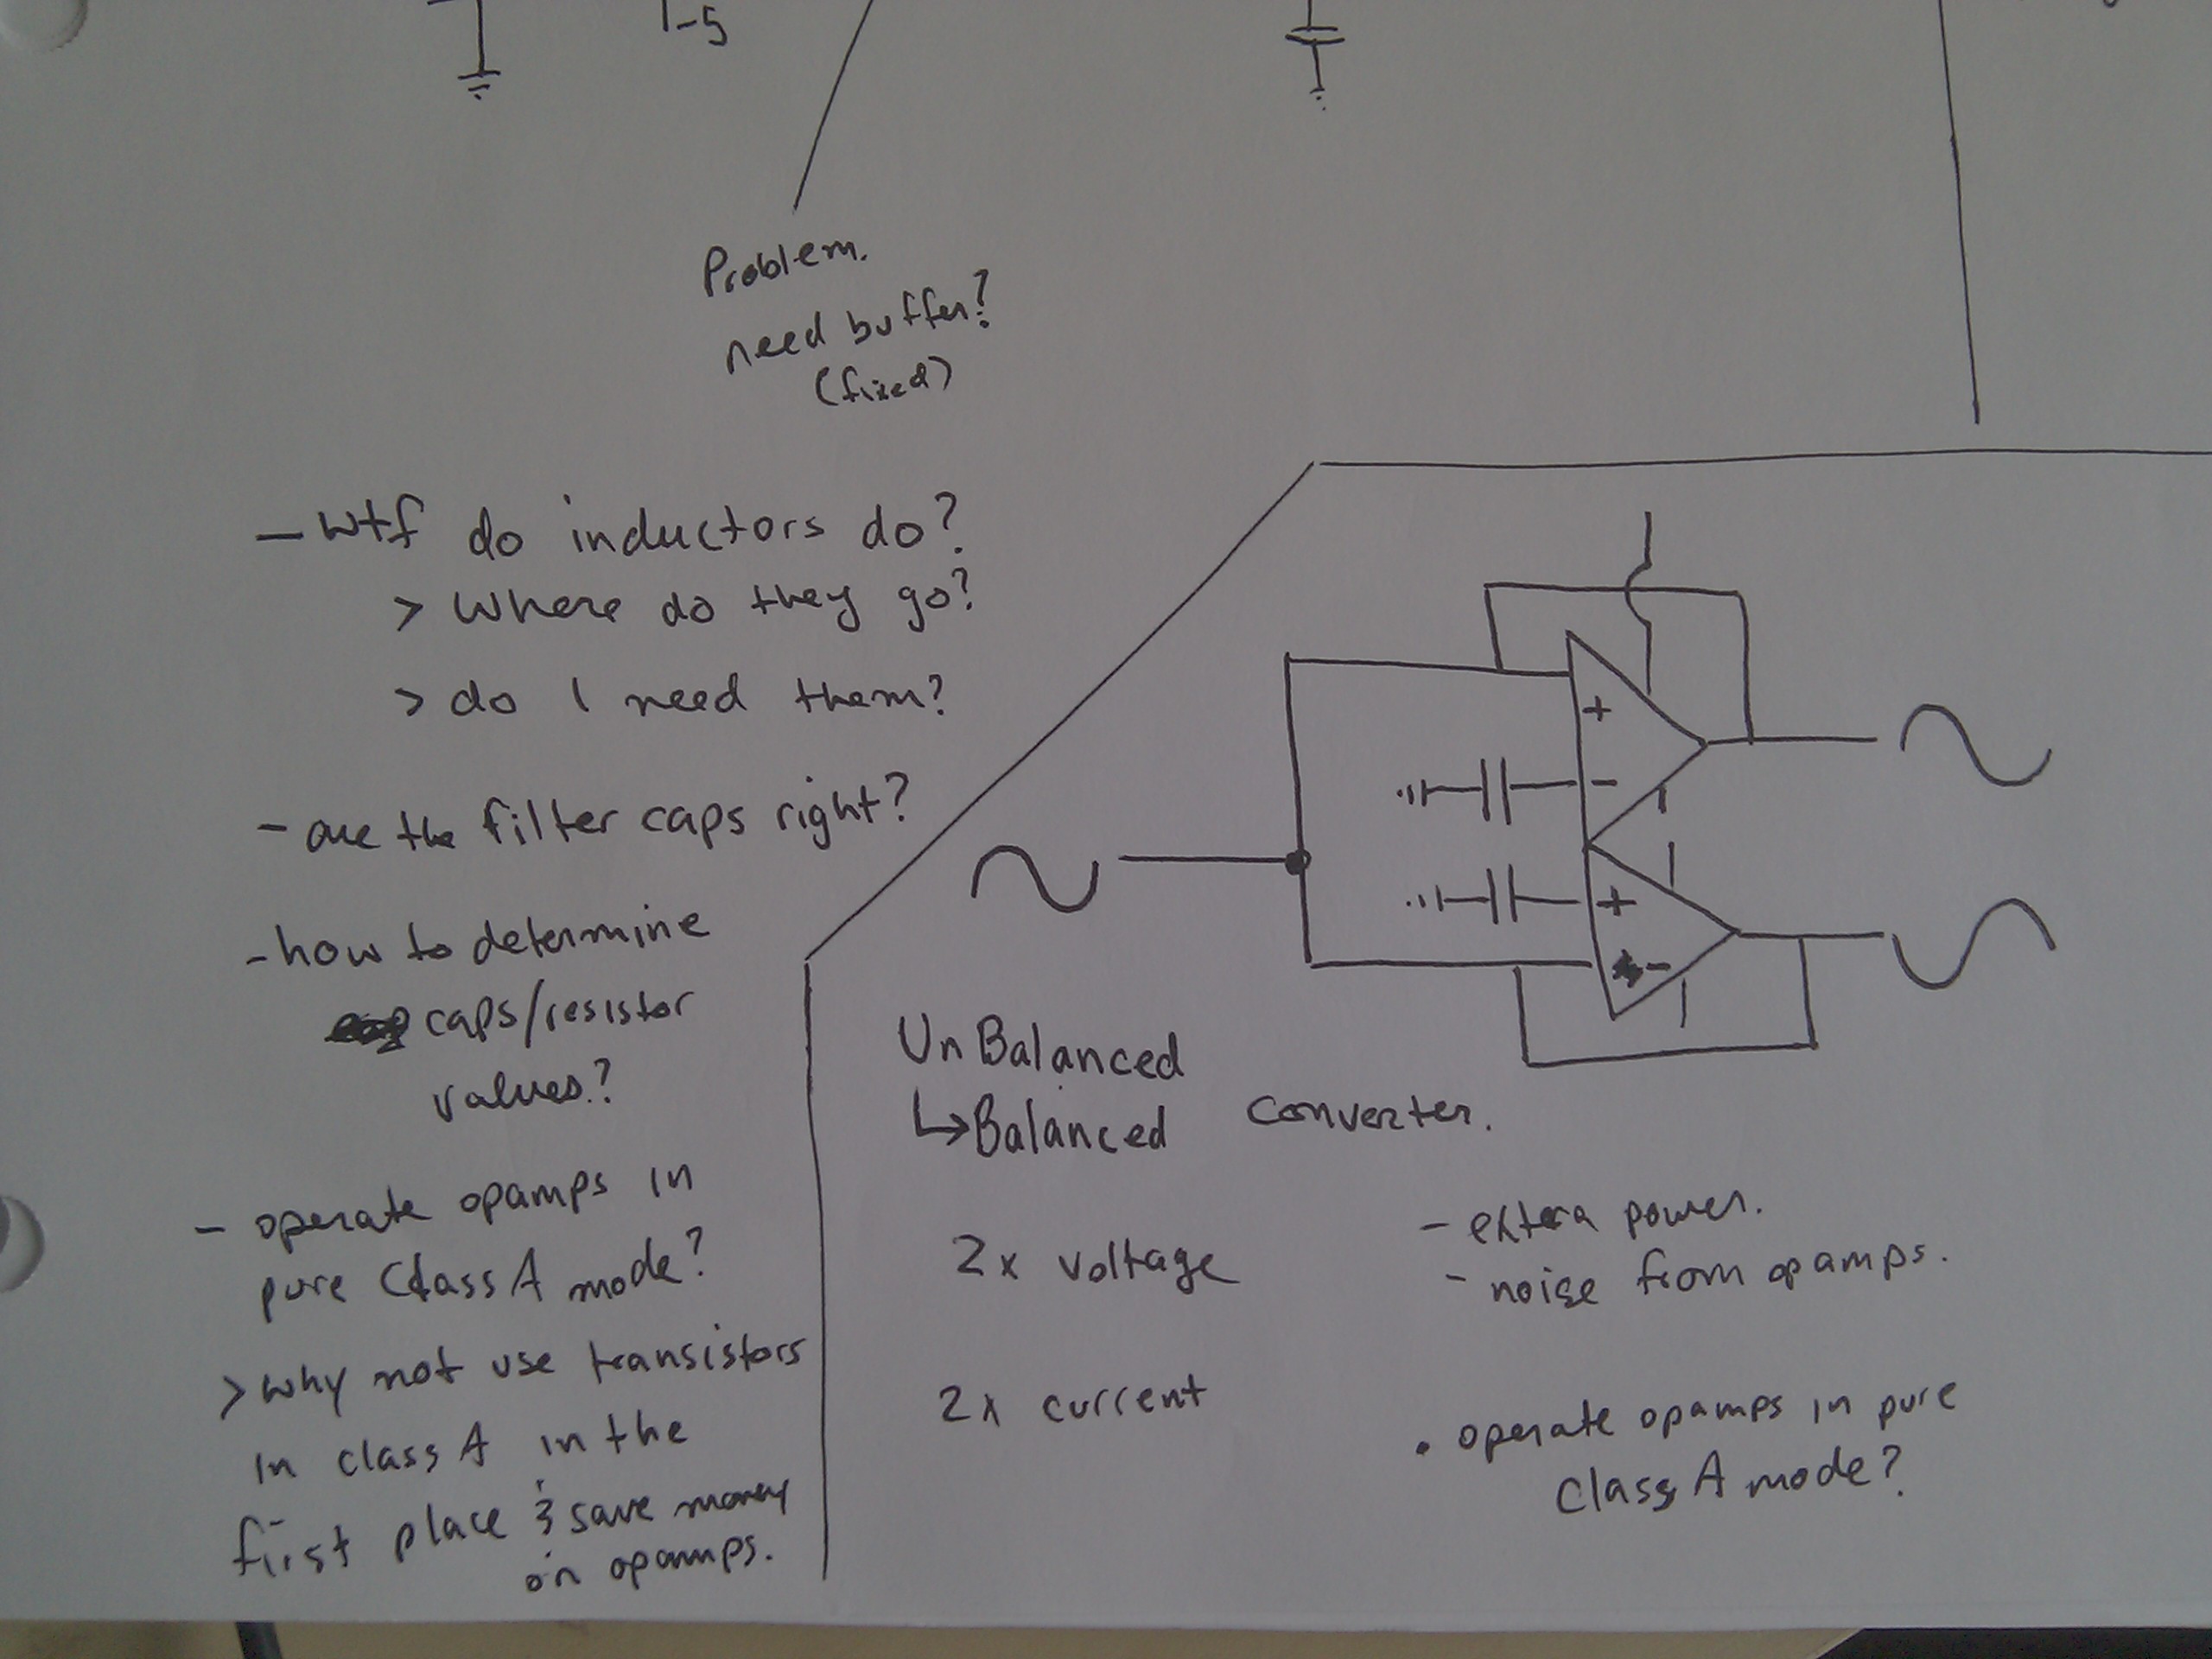 1-5
Problem.
need buffer?
(fixed)
- wtf do inductors do?
> Where do they go?
> do I need them?
- are the filter caps right?
- how to determine
caps/resistor
values?
- operate opamps in
pure Class A mode?
> why not use transistors
in class A in the
first place & save money
on opamps.
+
-
+
-
UnBalanced
↳Balanced converter.
2x voltage
2x current
- extra power.
- noise from opamps.
• operate opamps in pure
Class A mode?